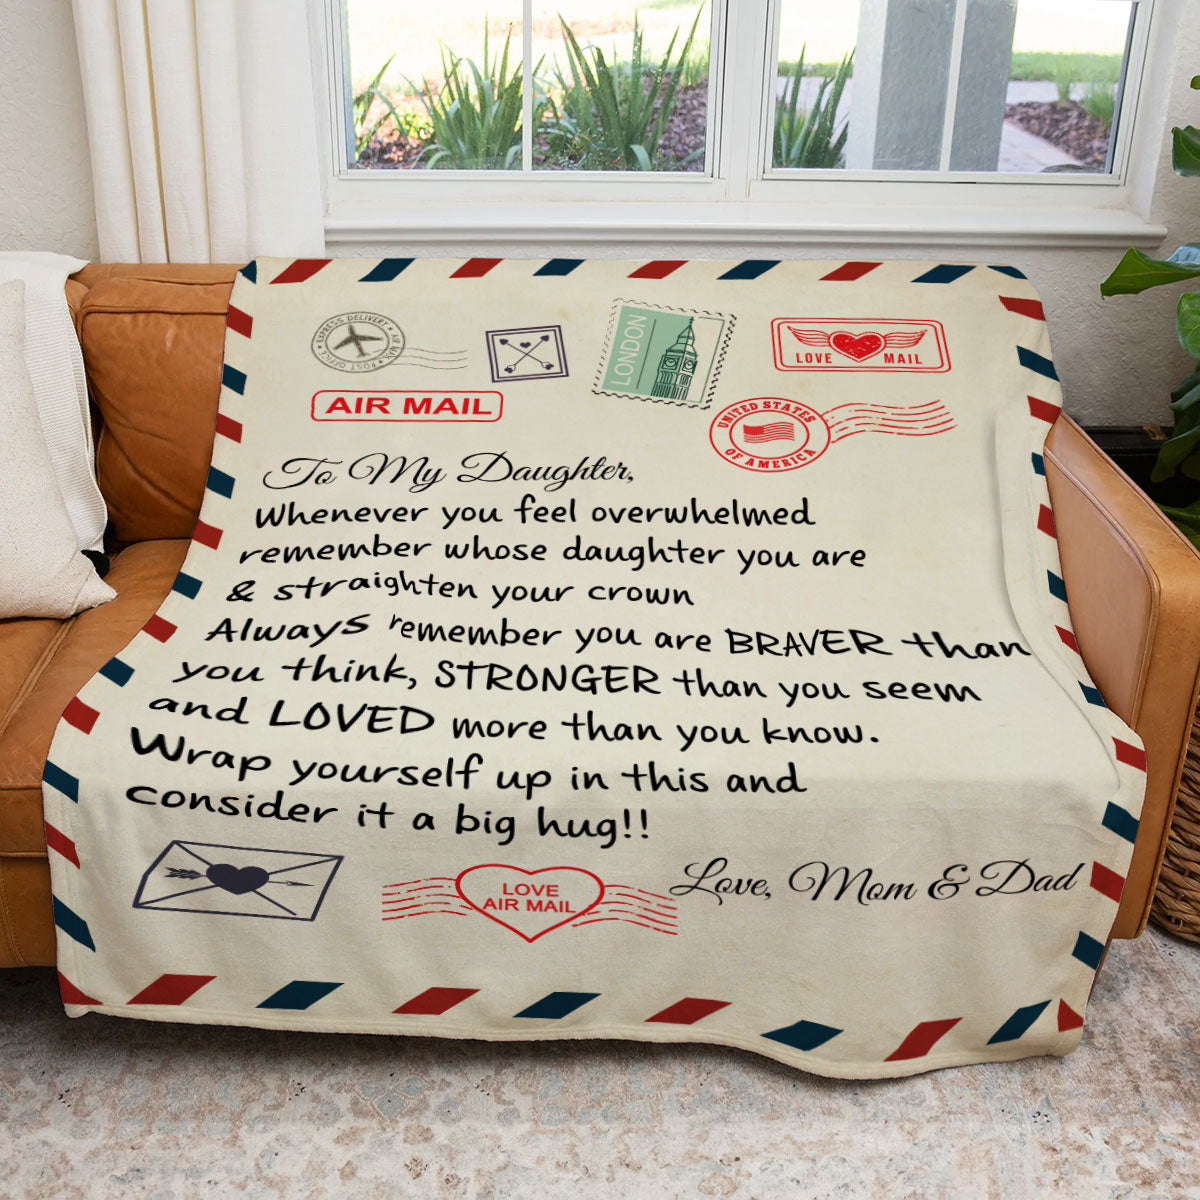 EXPRESS DELIVERY • AIR MAIL • POST OFFICE •
LONDON
LOVE MAIL
AIR MAIL
UNITED STATES
OF AMERICA
To My Daughter,
Whenever you feel overwhelmed
remember whose daughter you are
& straighten your crown
Always remember you are BRAVER than
you think, STRONGER than you seem
and LOVED more than you know.
Wrap yourself up in this and
consider it a big hug!!
LOVE
AIR MAIL
Love, Mom & Dad